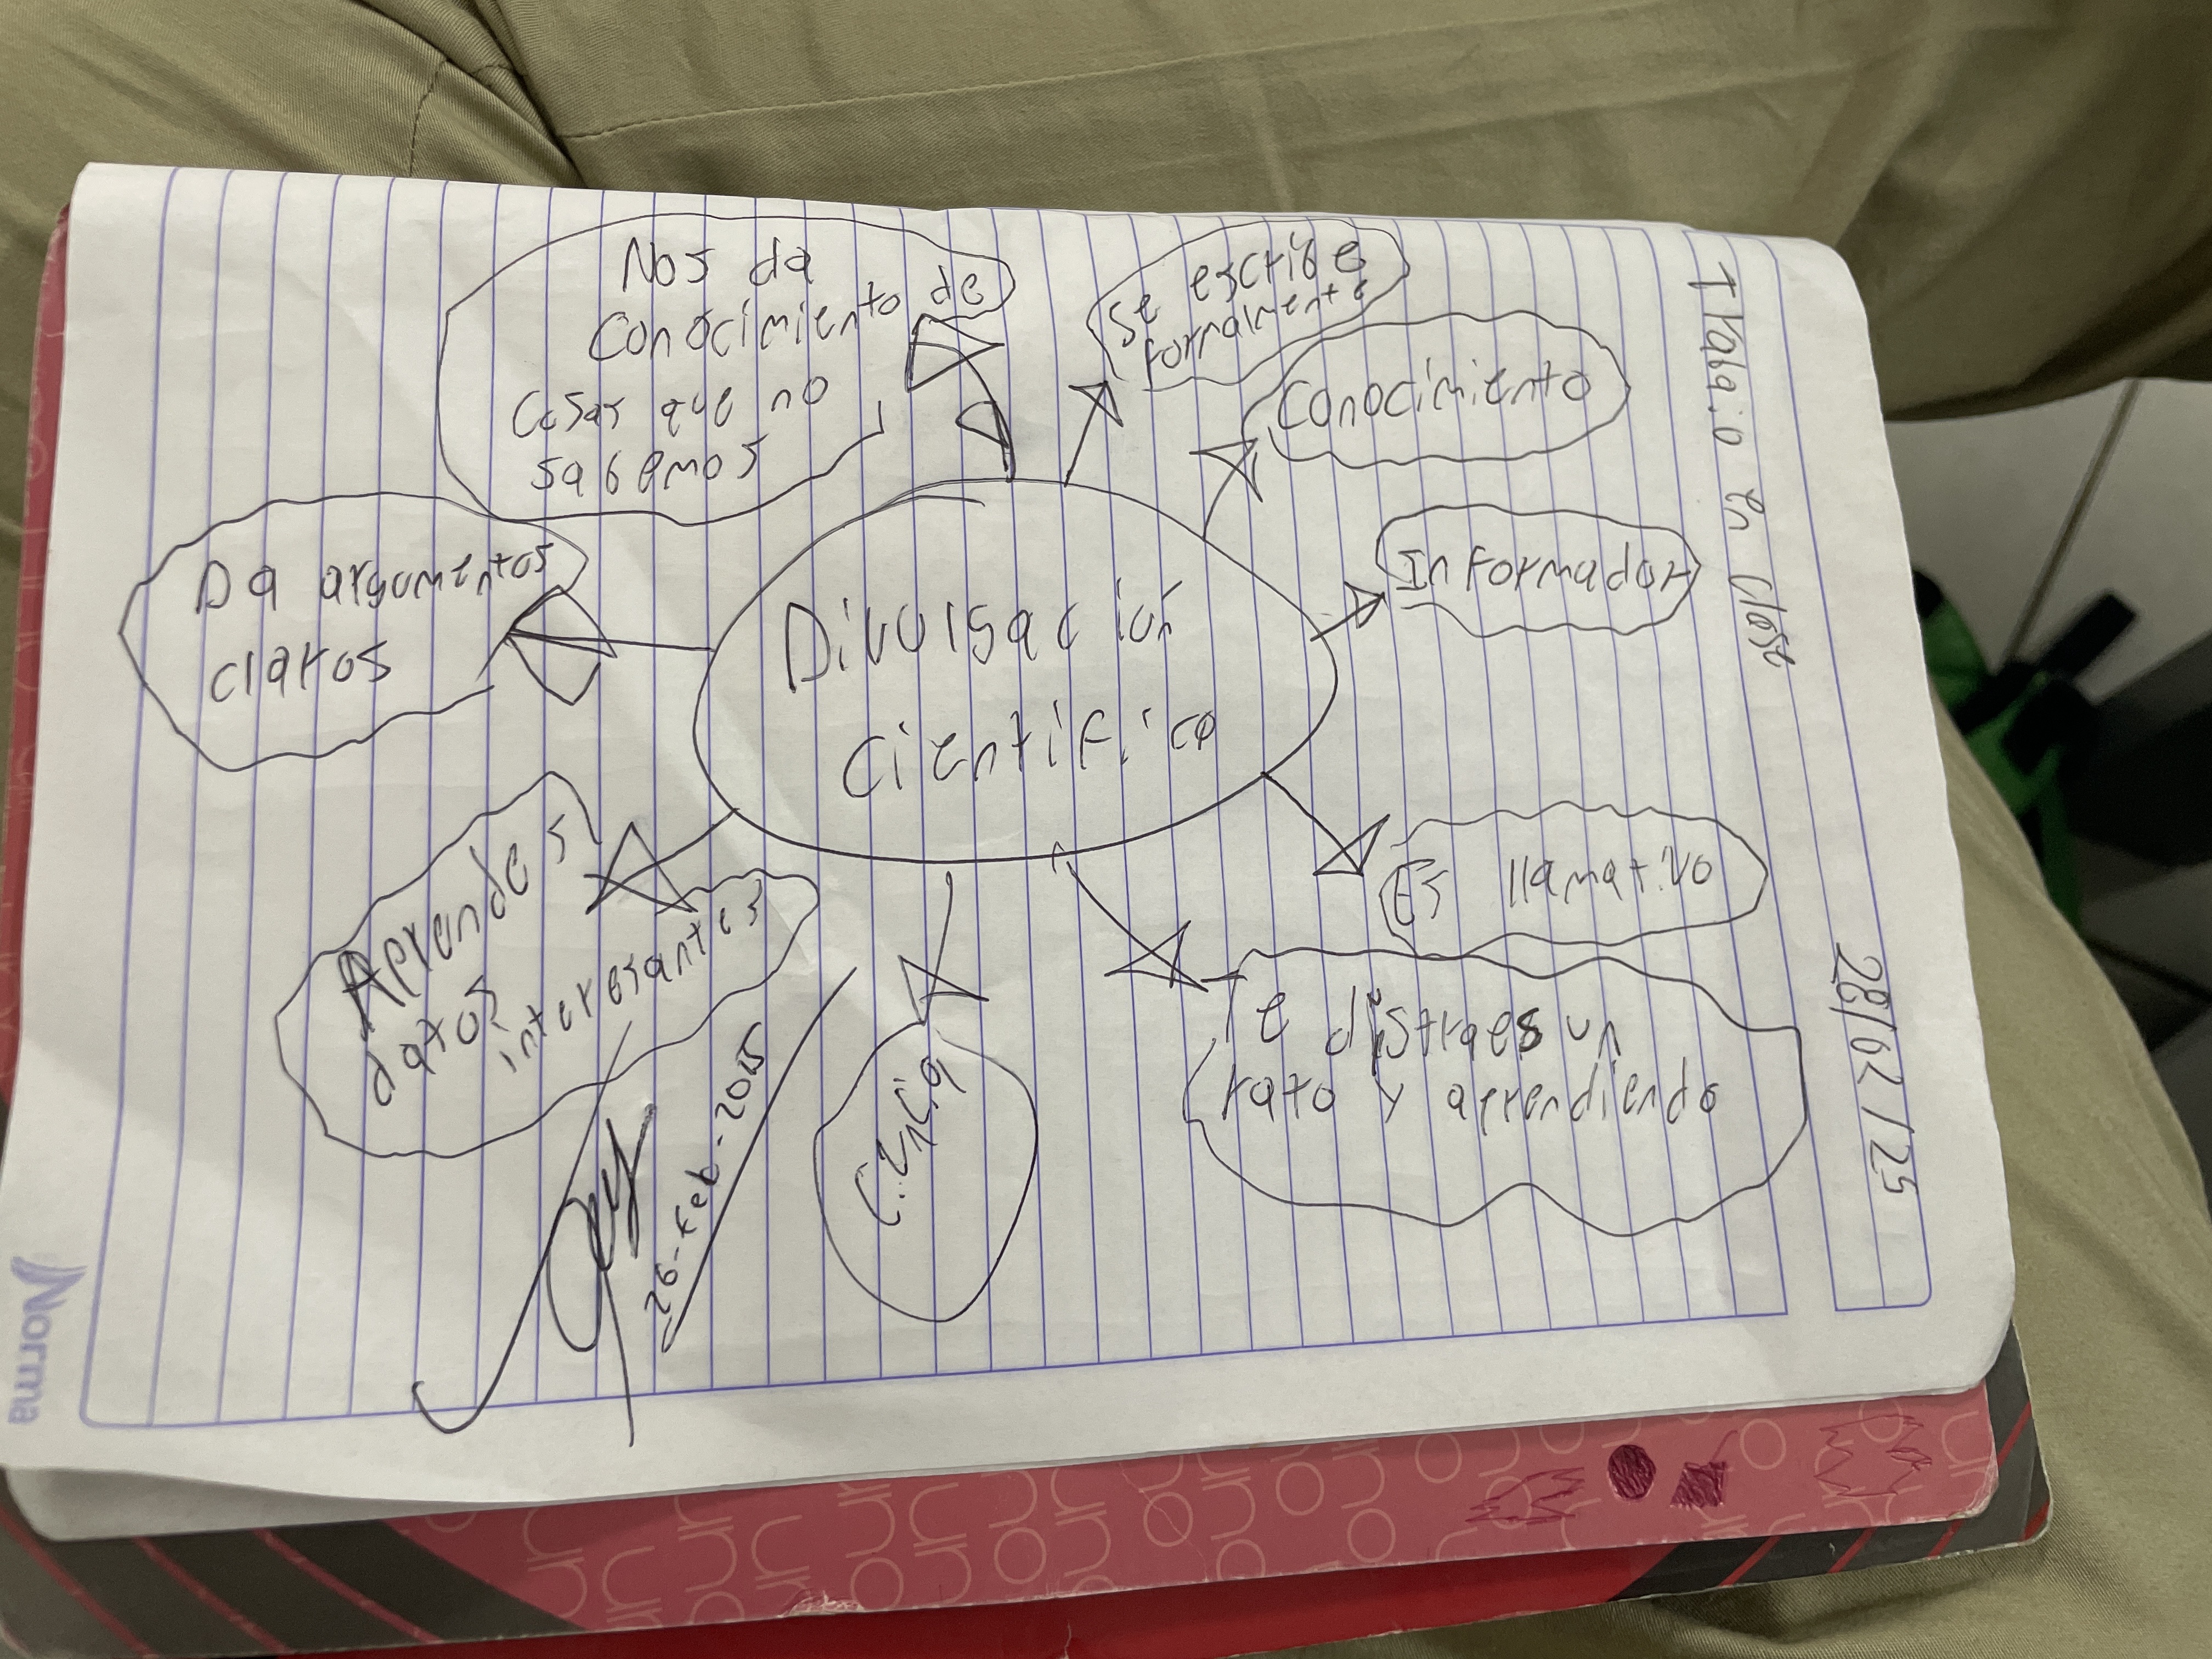 Trabajo en clase
28/02/25
Divulgación
Científica
Nos da
Conocimiento de
Cosas que no
sabemos
Se escribe
formalmente
Conocimiento
Informador
Es llamativo
Te distraes un
rato y aprendiendo
Ciencia
Aprendes
datos
interesantes
Da argumentos
claros
26-Feb-2025
Norma